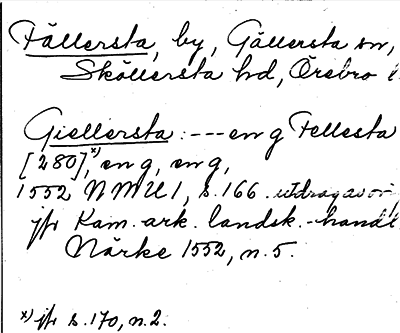 Fällersta, by, Gällersta sn,
Sköllersta hd, Örebro l
Giellersta: --- en g Fellesta
[280],x) en g, en g,
1552 NMU 1, s. 166. utdrag av or
jfr Kam. ark. landsk.-handl
Närke 1552, n. 5.
x) jfr s. 170, n. 2.